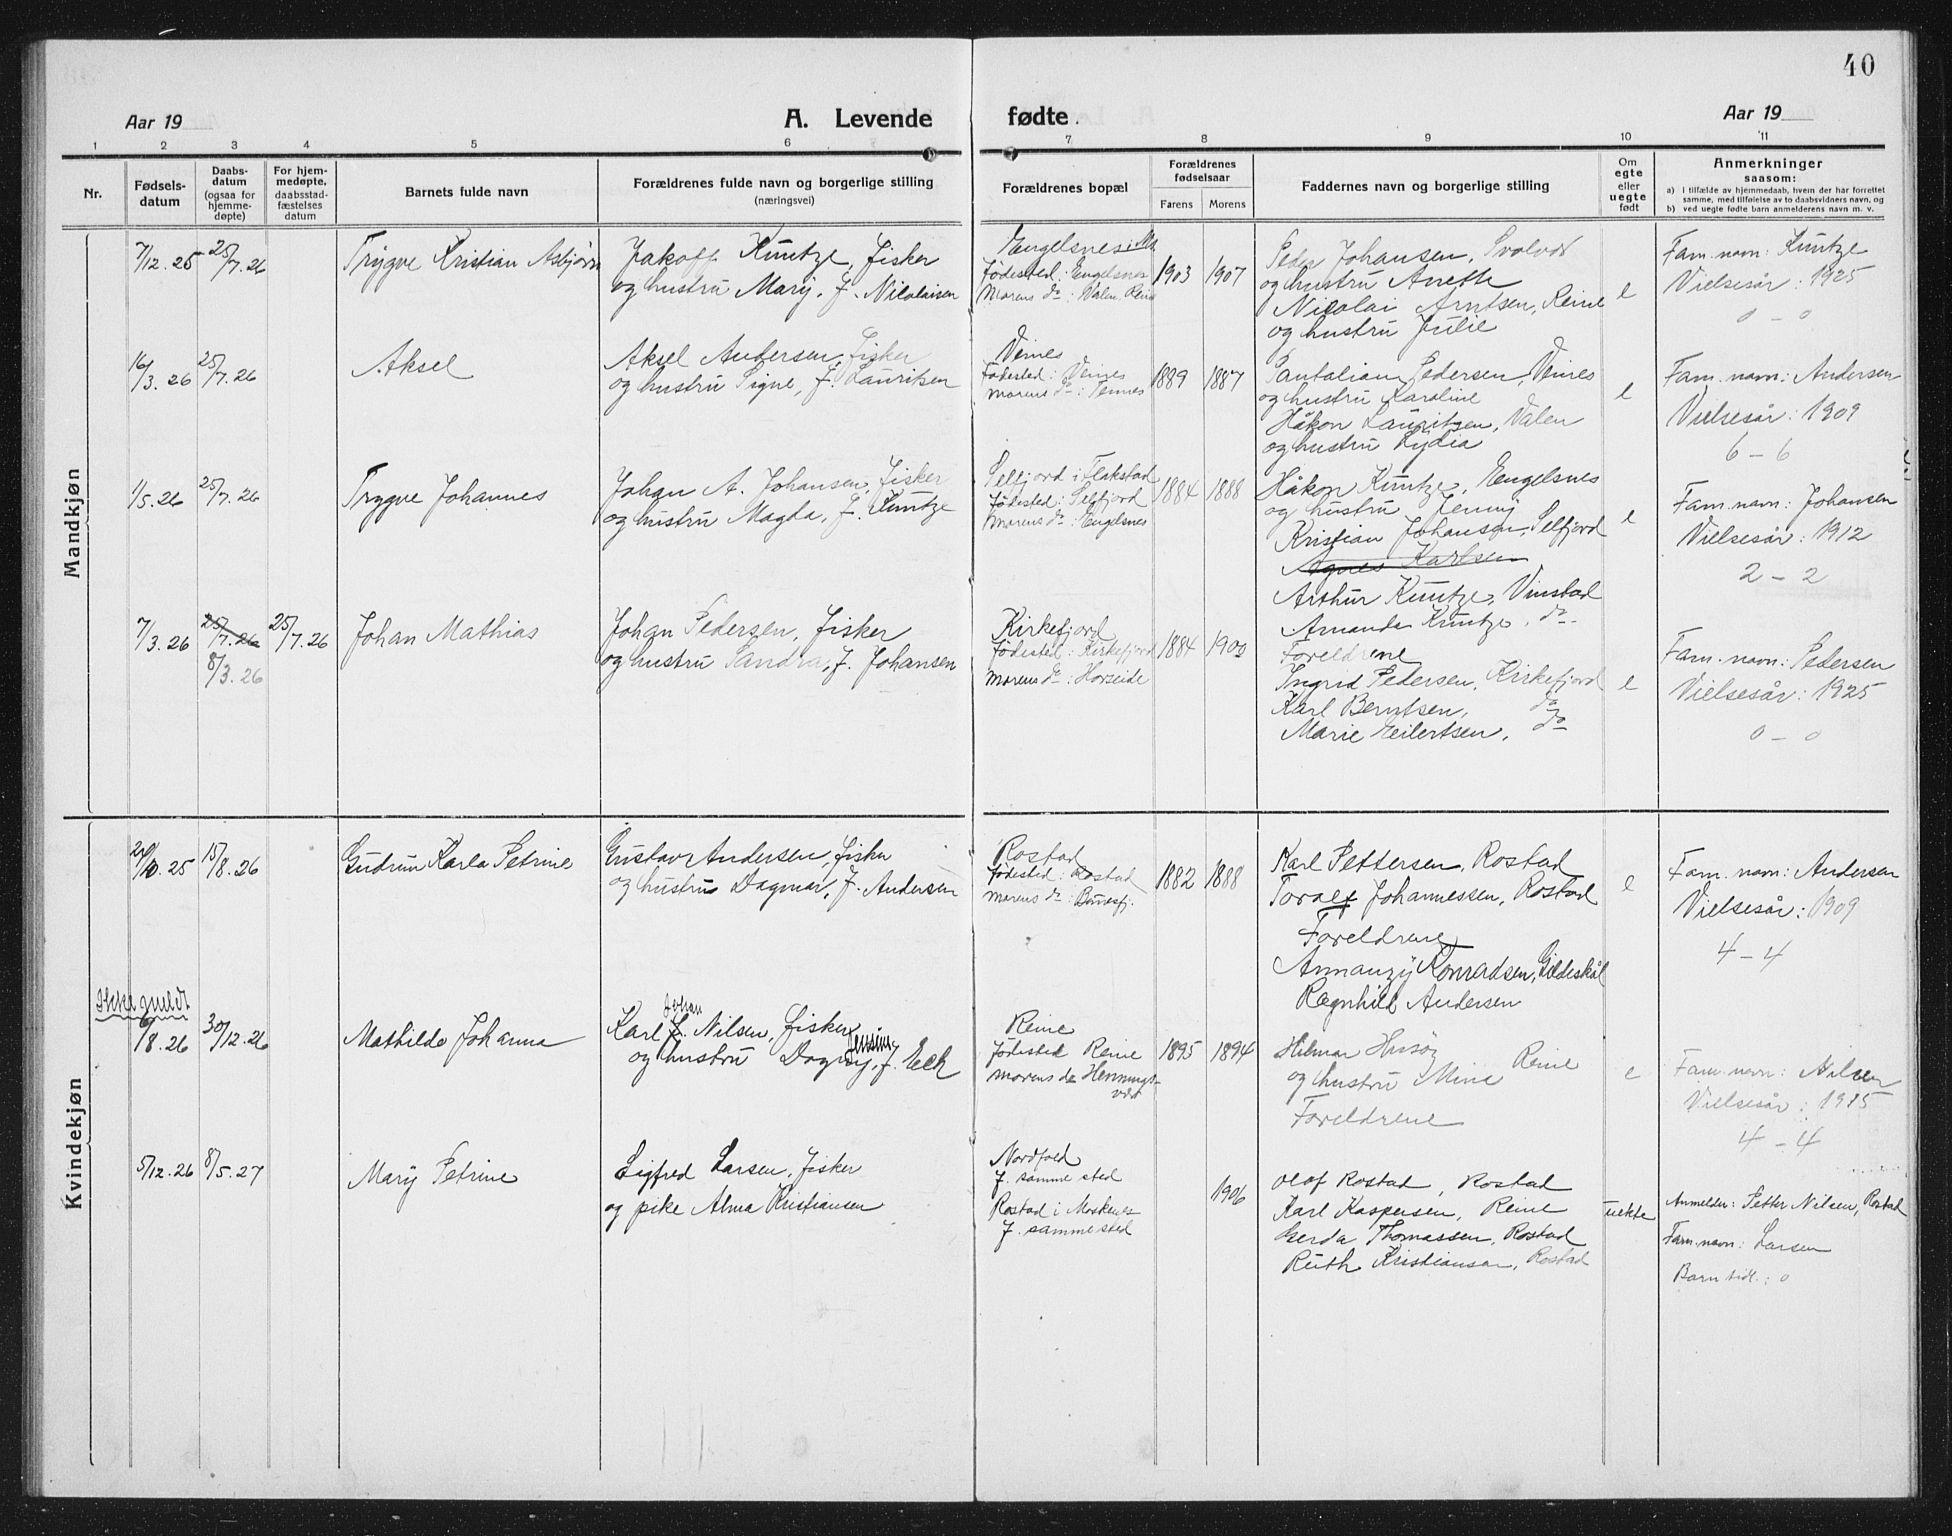 40
Aar 19
A. Levende
fødte.
Aar 19
1 2 3 4 5 6 7 8 9 10 11
Nr.
Fødsels-
datum
Daabs-
datum
(ogsaa for
hjemme-
døpte)
For hjem-
medøpte,
daabsstad-
fæstelses
datum
Barnets fulde navn
Forældrenes fulde navn og borgerlige stilling
(næringsvei)
Forældrenes bopæl
Forældrenes
fødselsaar
Farens Morens
Faddernes navn og borgerlige stilling
Om
egte
eller
uegte
født
Anmerkninger
saasom:
a) I tilfælde av hjemmedaab, hvem der har forrettet
samme, med tilføielse av to daabsvidners navn, og
b) ved uegte fødte barn anmelderens navn m. v.
Mandkjøn
7/12.25 25/7.26
Trygve Kristian Asbjørn
Jakoff Kuntze, fisker
og hustru Mary, f. Nikolaisen
Engelsnes
Fødested: Engelsnes
Morens do: Valen, Reine
1903 1907
Peder Johansen, Svolvær
og hustru Anette
Nicolai Arntsen, Reine
og hustru Julie
e
Fam. navn: Kuntze
Vielsesår: 1925
0 – 0
16/3.26 25/7.26
Aksel
Aksel Andersen, fisker
og hustru Signe, f. Lauritsen
Veines
Fødested: Veines
Morens do: Tennes
1889 1887
Pantalian Pedersen, Veines
og hustru Karoline
Håkon Lauritsen, Valen
og hustru Lydia
e
Fam. navn: Andersen
Vielsesår: 1909
6 – 6
1/5.26 25/7.26
Trygve Johannes
Johan A. Johansen, fisker
og hustru Magda, f. Kuntze
Selfjord i Flakstad
Fødested: Selfjord
Morens do: Engelsnes
1884 1888
Håkon Kuntze, Engelsnes
og hustru Jenny
Kristian Johansen, Selfjord
Agnes Karlsen
Arthur Kuntze, Vinstad
Amanda Kuntze, do
e
Fam. navn: Johansen
Vielsesår: 1912
2 – 2
7/3.26 25/7.26 25/7.26
8/3.26
Johan Mathias
Johan Pedersen, fisker
og hustru Sandra, f. Johansen
Kirkefjord
Fødested: Kirkefjord
Morens do: Horseide
1884 1900
Foreldrene
Ingrid Pedersen, Kirkefjord
Karl Berntsen, do
Marie Eilertsen, do
e
Fam. navn: Pedersen
Vielsesår: 1925
0 – 0
Kvindekjøn
/10.25 15/8.26
Gudrun Karla Petrine
Gustav Andersen, fisker
og hustru Dagmar, f. Andersen
Rostad
Fødested: Rostad
Morens do: Bunesfj.
1882 1888
Karl Pettersen, Rostad
Toralf Johannessen, Rostad
Foreldrene
Annanzy Konradsen, Gildeskål
Ragnhild Andersen
e
Fam. navn: Andersen
Vielsesår: 1909
4 – 4
Ikke meldt
/8.26 30/12.26
Mathilde Johanna
Johan
Karl J. Nilsen, fisker
Jensine
og hustru Dagny, f. Eck
Reine
Fødested Reine
Morens do Hennings-
vær
1895 1894
Hilmar Husøy
Reine
og hustru Mine
Foreldrene
e
Fam. navn: Nilsen
Vielsesår: 1915
4 – 4
5/12.26 8/5.27
Mary Petrine
Sigfred Larsen, fisker
og pike Alma Kristiansen
Nordfold
f. samme sted
Rostad i Moskenes
f. samme sted
1906
Olaf Rostad, Rostad
Karl Kaspersen, Reine
Gerda Thomassen, Rostad
Ruth Kristiansen, Rostad
uekte
Anmelder: Petter Nilsen, Rostad
Fam. navn: Larsen
Barn tidl.: 0